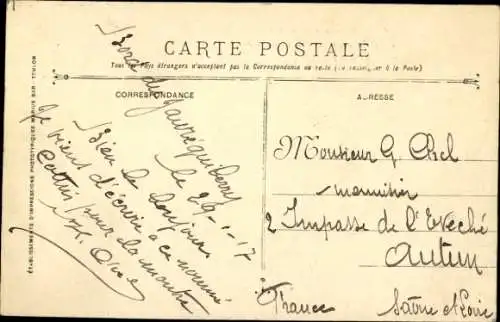 CARTE POSTALE
Tous les Pays étrangers n'acceptent pas la Correspondance au recto (se renseigner à la Poste)
CORRESPONDANCE
ADRESSE
ÉTABLISSEMENTS D'IMPRESSIONS PHOTOTYPIQUES MARIUS BAR, TOULON
Bord du Jauréguiberry
le 29-1-17
Bien le bonjour
Je viens d'écrire à ce nommé
pour la montre
Monsieur G.
menuisier
2 Impasse de l'Evêché
Autun
France Saône et Loire